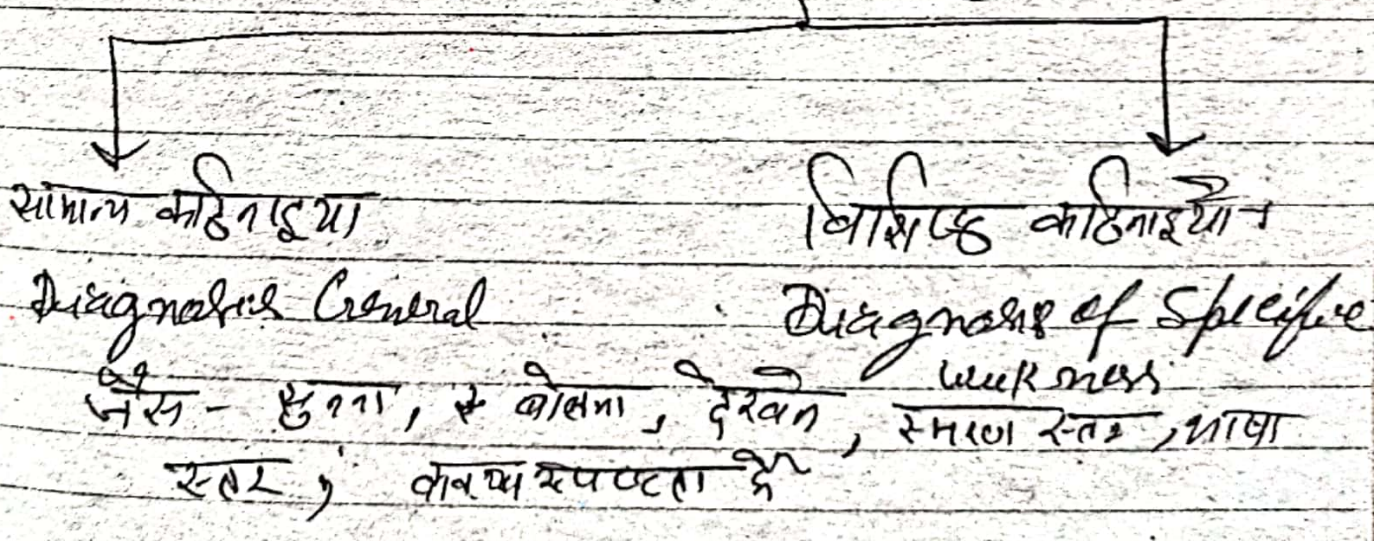 सामान्य कठिनाइया
विशिष्ठ कठिनाइयाँ
Diagnosis General
Diagnosis of Specific
weekness
जैसे - सुनना, बोलना, देखने, स्मरण स्तर, भाषा
स्तर, वाक्य स्पष्टता में